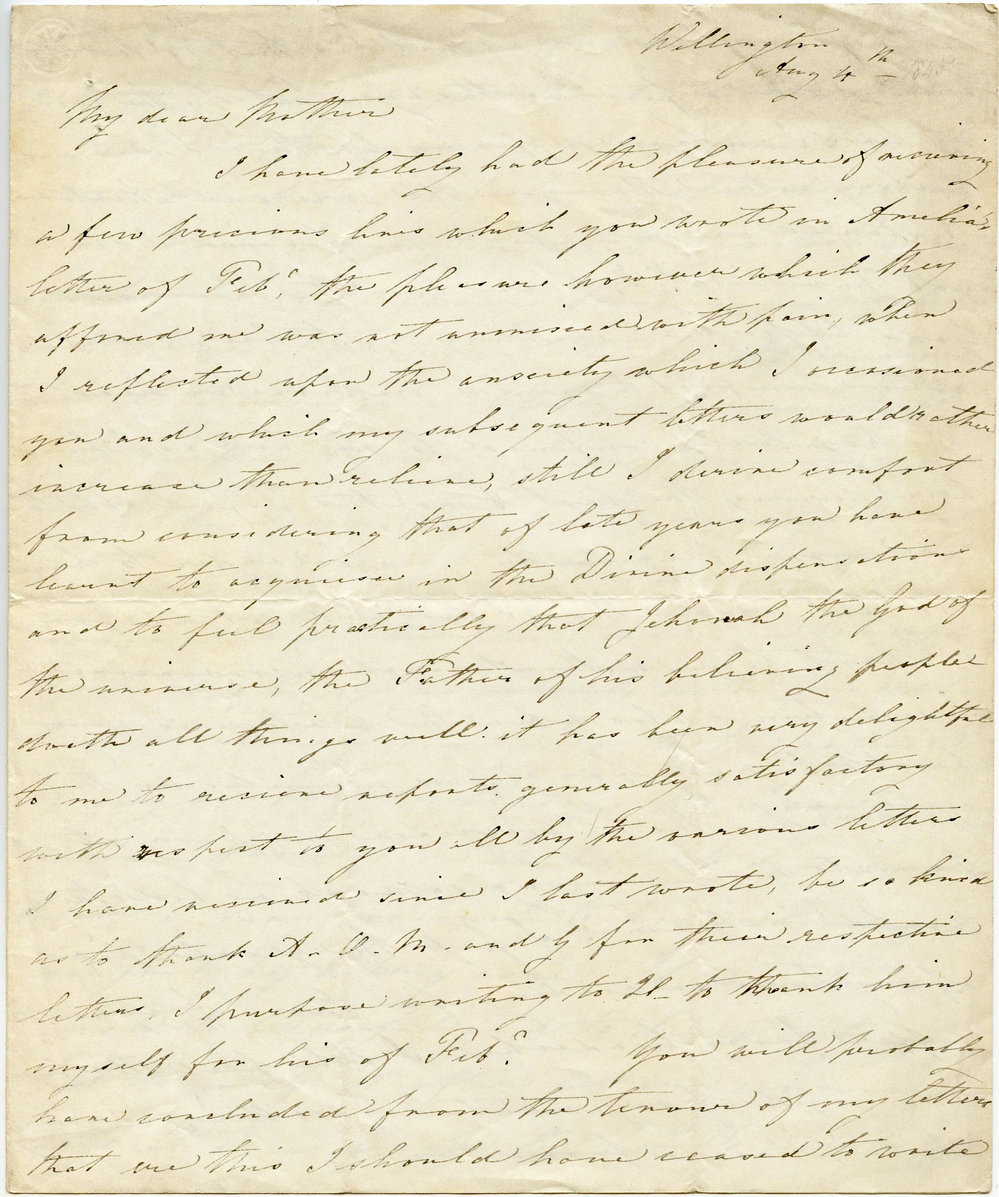 Wellington
Aug 4th
My dear Mother
I have lately had the pleasure of receiving
a few precious lines which you wrote in Amelia's
letter of Feby, the pleasure however which they
afforded me was not unmixed with pain, when
I reflected upon the anxiety which I occasioned
you and which my subsequent letters would rather
increase than relieve, still I derive comfort
from considering that of late years you have
learnt to acquiesce in the Divine dispensations
and to feel practically that Jehovah the God of
the universe, the Father of his believing people
doeth all things well. it has been very delightful
to me to receive reports generally satisfactory
with respect to you all by the various letters
I have received since I last wrote, be so kind
as to thank A. O. M. and G for their respective
letters, I purpose writing to H- to thank him
myself for his of Feby. You will probably
have concluded from the tenour of my letters
that ere this I should have ceased to write